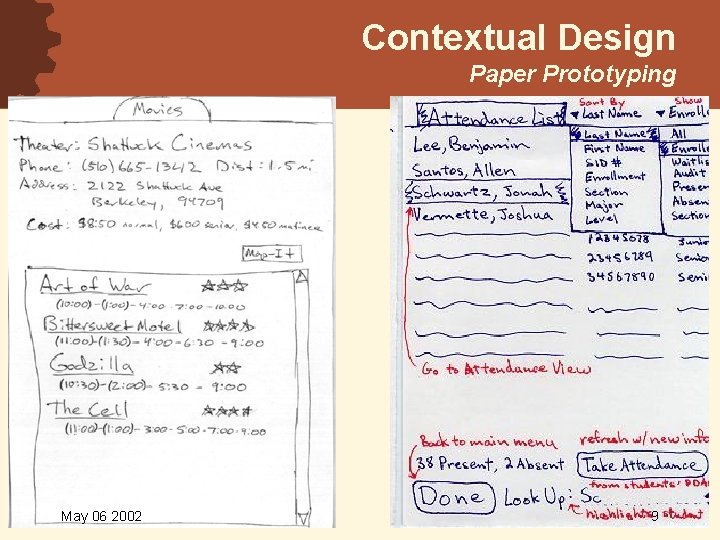 Contextual Design
Paper Prototyping
Movies
Theater: Shattuck Cinemas
Phone: (510) 665-13412 Dist: 1.5 mi
Address: 2122 Shattuck Ave
Berkeley, 94709
Cost: $8.50 normal, $6.00 senior, $4.50 matinee
Map-It
Art of War ☆☆☆
(10:00)-(1:00)-4:00-7:00-10:00
Bittersweet Motel ☆☆☆☆
(11:00)-(1:30)-4:00-6:30-9:00
Godzilla ☆☆
(10:30)-(2:00)-5:30-9:00
The Cell ☆☆☆☆
(11:00)-(1:00)-3:00-5:00-7:00-9:00
Sort By Show
Attendance List ▼Last Name ▼Enroll
Lee, Benjamin
Santos, Allen
Schwartz, Jonah
Vermette, Joshua
Last Name
First Name
SID #
Enrollment
Section
Major
Level
All
Enrolle
Waitlis
Audit
Presen
Absen
Section
12345678 Junio
23456789 Senio
34567890 Seni
Go to Attendance View
Back to main menu refresh w/ new info
38 Present, 2 Absent Take Attendance
from students' PDA
Done Look Up: Sc
highlights student
May 06 2002
9